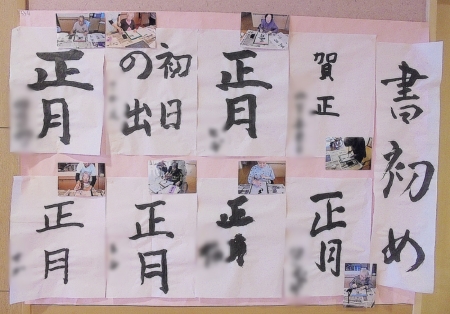 書初め
賀正
正月
初日
の出
正月
正月
正月
正月
正月